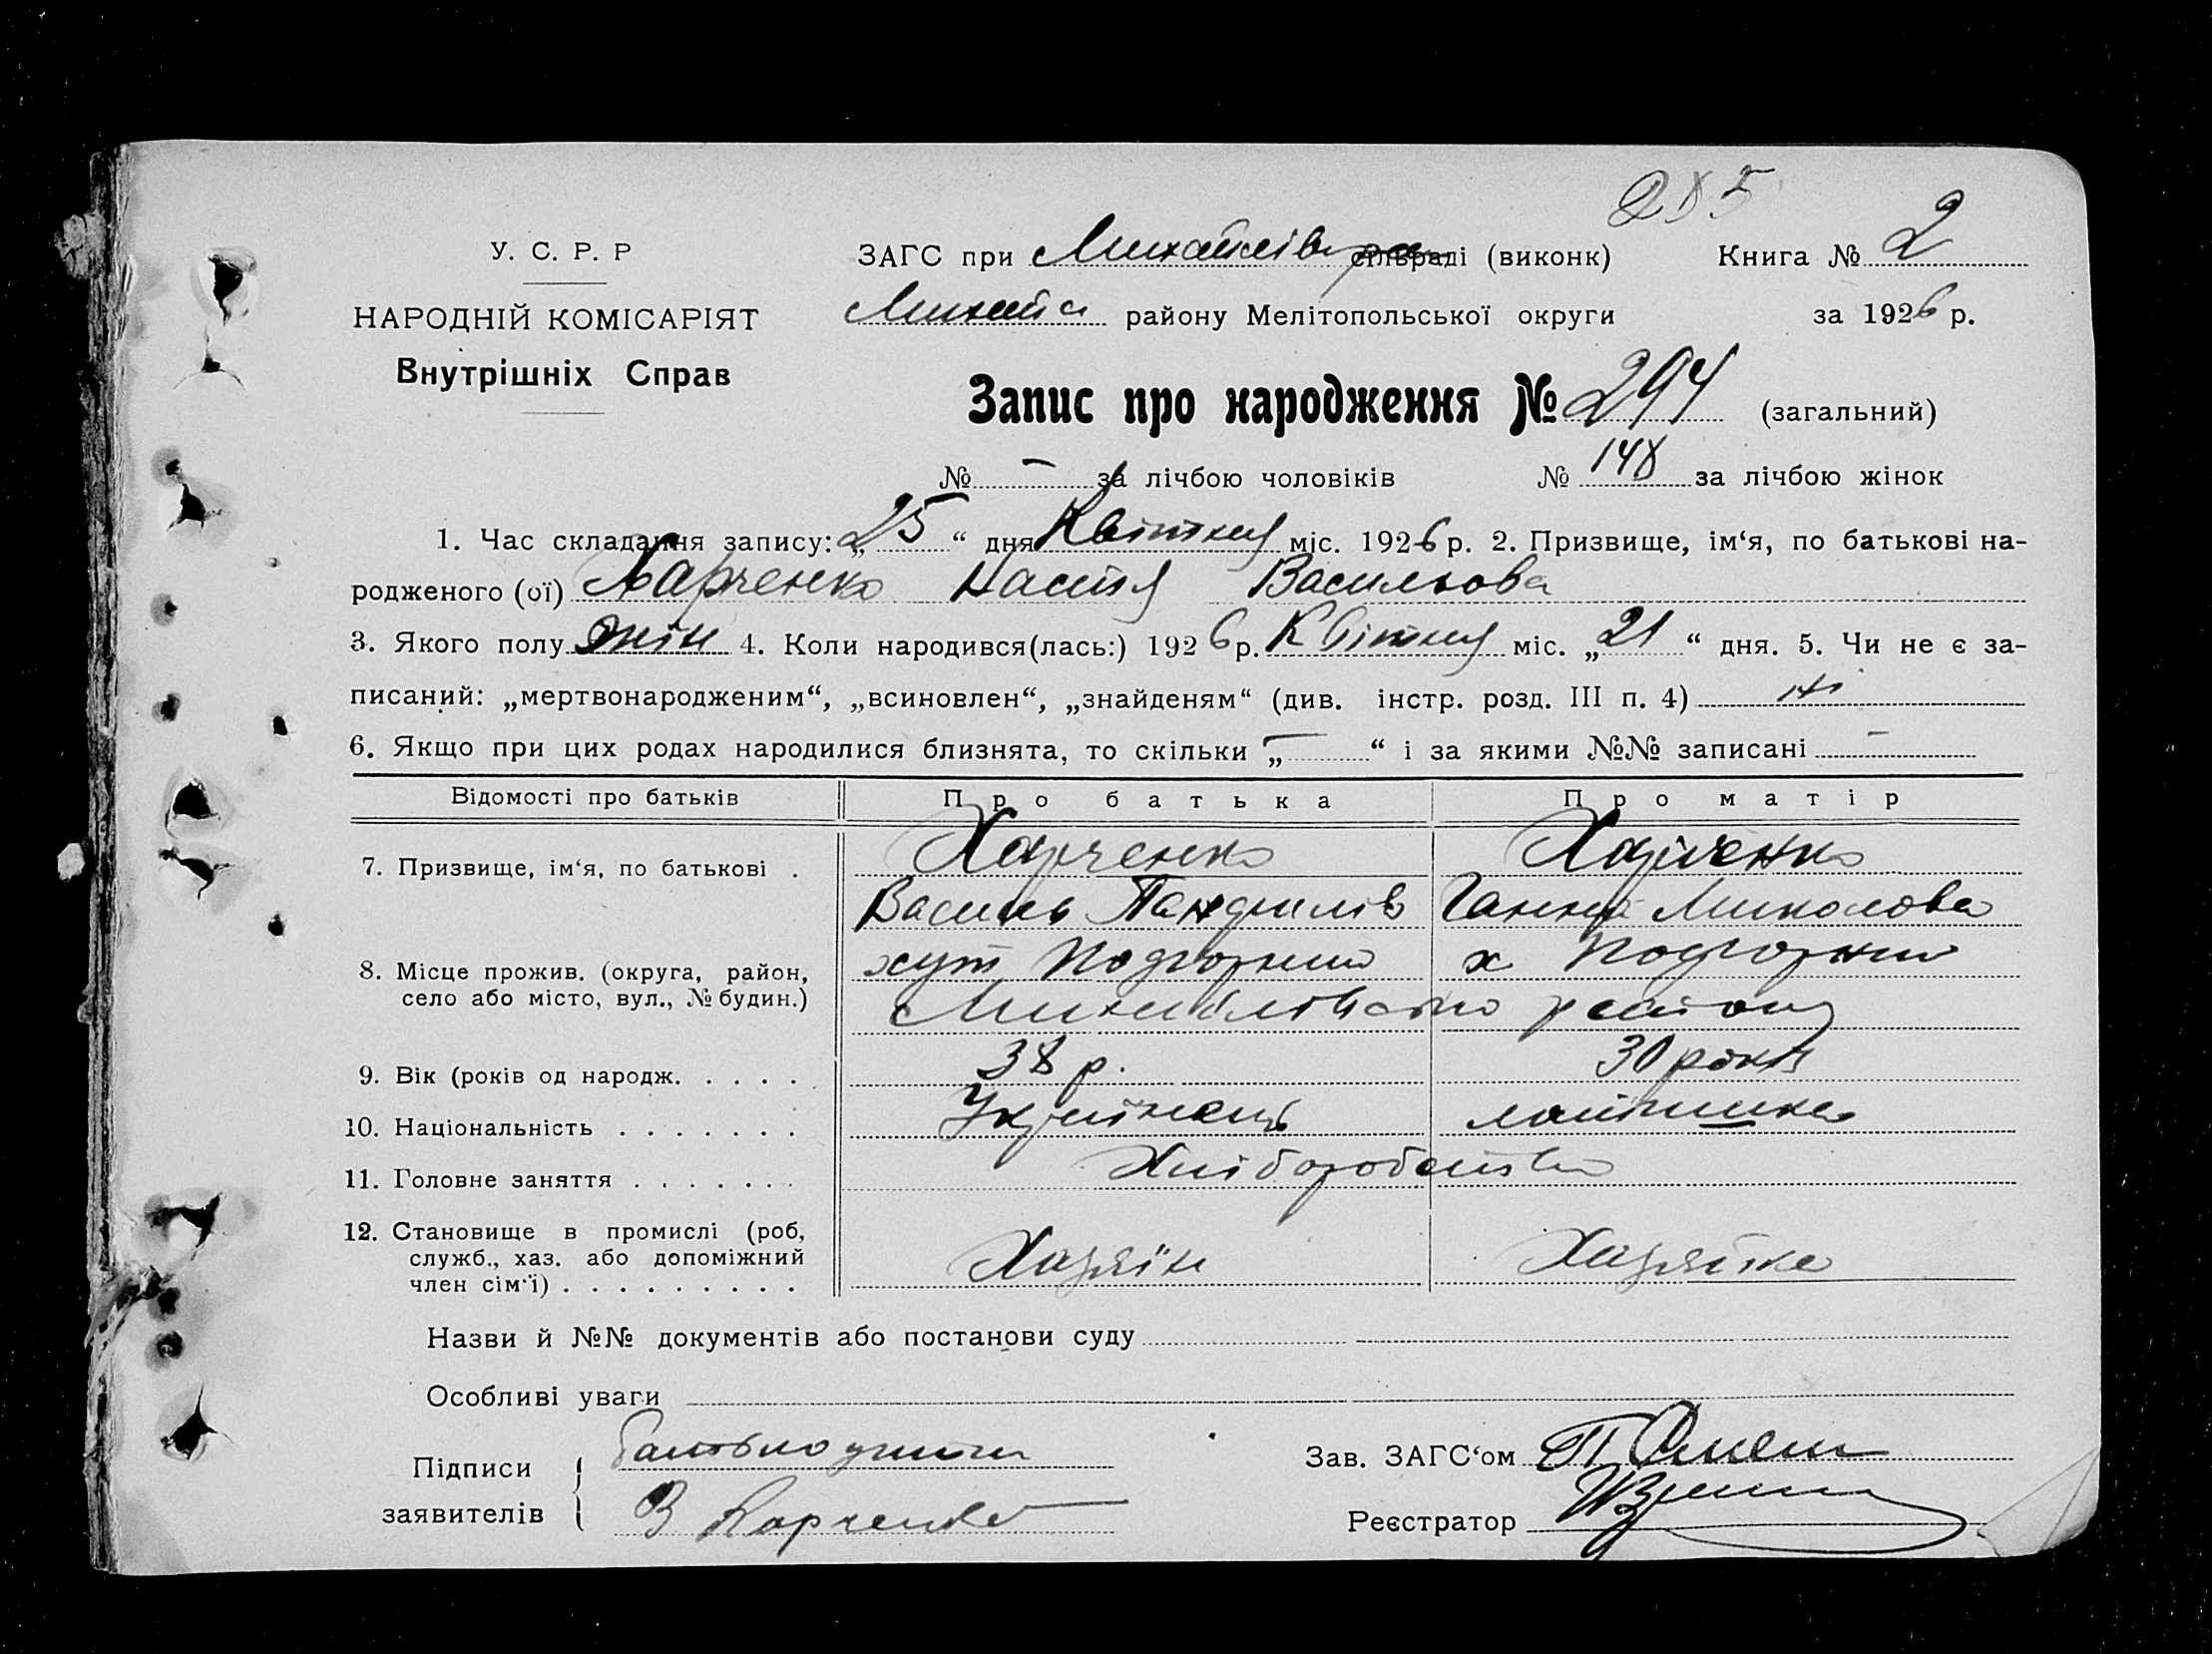 285
У. С. Р. Р
НАРОДНІЙ КОМІСАРІЯТ
Внутрішніх Справ
ЗАГС при Михайлів сільраді (виконк) Книга № 2
Михайл району Мелітопольської округи за 1926 р.
Запис про народження № 294 (загальний)
№ — за лічбою чоловіків № 148 за лічбою жінок
1. Час складання запису: „25“ дня Квітня міс. 1926 р. 2. Призвище, ім‘я, по батькові на-
родженого (ої) Харченко Настя Васильова
3. Якого полу жін 4. Коли народився(лась:) 1926 р. Квітня міс. „21“ дня. 5. Чи не є за-
писаний: „мертвонародженим“, „всиновлен“, „знайденям“ (див. інстр. розд. III п. 4) ні
6. Якщо при цих родах народилися близнята, то скільки „—“ і за якими №№ записані —
Відомості про батьків Про батька Про матір
7. Призвище, ім‘я, по батькові . Харченко Харченко
Василь Панфилів Ганна Миколова
8. Місце прожив. (округа, район, село або місто, вул., № будин.) хут Подгорний х Подгорний
Михайлівського району
9. Вік (років од народж. . . . . 38 р. 30 років
10. Національність . . . . . . . Українець
11. Головне заняття . . . . . . . Хліборобство
12. Становище в промислі (роб, служб., хаз. або допоміжний член сім‘ї) . . . . . . . . . Хазяїн Хазяйка
Назви й №№ документів або постанови суду
Особливі уваги
Підписи заявителів
В Харченко
Зав. ЗАГС‘ом
Реєстратор